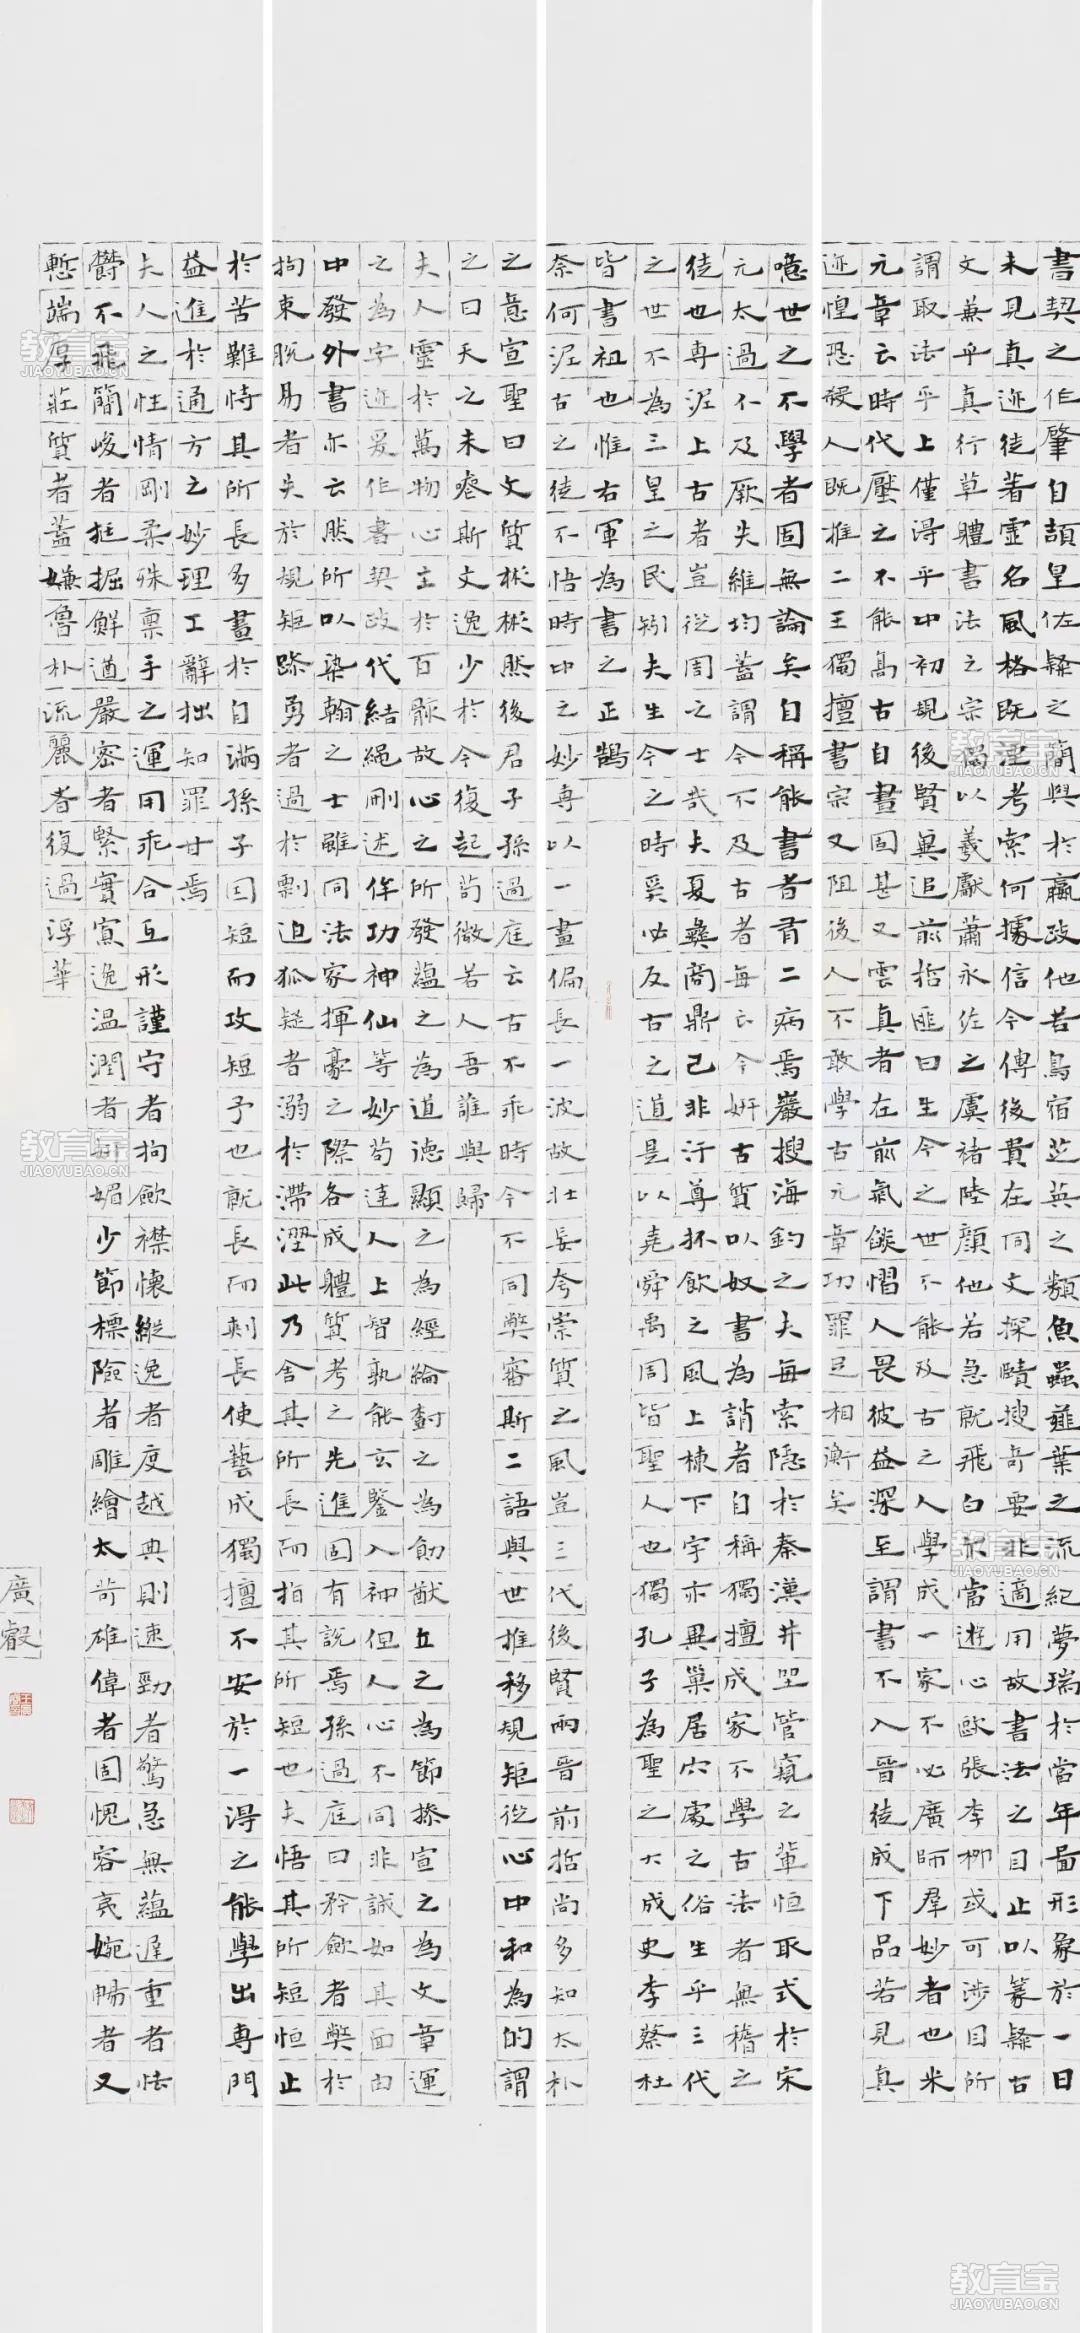 書契之作肇自頡皇佐隸之簡興於嬴政他若鳥宿芝英之類魚蟲薤葉之流紀夢瑞於當年圖形象於一日
未見真迹徒著靈名風格既湮考索何據信今傳後貴在同文探賾搜奇要非適用故書法之目止以篆隸古
文兼乎真行草體書法之宗獨以羲獻蕭永佐之虞褚陸顏他若急就飛白亦當遊心歐張李柳或可涉目所
謂取法乎上僅得乎中初規後賢冀追前哲匪曰生今之世不能及古之人學成一家不必廣師群妙者也米
元章云時代壓之不能高古自畫固甚又雲真者在前氣燄慴人畏彼益深至謂書不入晉徒成下品若見真
迹惶恐殺人既推二王獨擅書宗又阻後人不敢學古元章功罪相衡矣
噫世之不學者固無論矣自稱能書者有二病焉巖搜海釣之夫每索隱於秦漢井坐管窺之輩恒取式於宋
元太過不及厥失維均蓋謂今不及古者每云今妍古質以奴書為誚者自稱獨擅成家不學古法者無稽之
徒也專泥上古者豈從周之士哉夫夏彝商鼎已非汙尊抔飲之風上棟下宇亦異巢居穴處之俗生乎三代
之世不為三皇之民矧夫生今之時奚必反古之道是以堯舜禹周皆聖人也獨孔子為聖之大成史李蔡杜
皆書祖也惟右軍為書之正鵠
奈何泥古之徒不悟時中之妙專以一畫偏長一波故壯妄夸崇質之風豈三代後賢兩晉前哲尚多知太朴
之意宣聖曰文質彬彬然後君子孫過庭云古不乖時今不同弊審斯二語與世推移規矩從心中和為的謂
之曰天之未喪斯文逸少於今復起苟微若人吾誰與歸
夫人靈於萬物心主於百骸故心之所發蘊之為道德顯之為經綸樹之為勛猷立之為節操宣之為文章運
之為字迹爰作書契政代結繩刪述侔功神仙等妙苟達人上智孰能玄鑒入神但人心不同非誠如其面由
中發外書亦云然所以染翰之士雖同法家揮豪之際各成體質考之先進固有說焉孫過庭曰矜斂者弊於
拘束脫易者失於規矩躁勇者過於剽迫狐疑者溺於滯澀此乃舍其所長而指其所短也夫悟其所短恒止
於苦難恃其所長多畫於自滿孫子因短而攻短予也就長而刺長使藝成獨擅不安於一得之能學出專門
益進於通方之妙理工辭拙知罪甘焉
夫人之性情剛柔殊稟手之運用乖合互形謹守者拘斂襟懷縱逸者度越典則速勁者驚急無蘊遲重者怯
鬱不飛簡峻者挺掘鮮遒嚴密者緊實寡逸溫潤者妍媚少節標險者雕繪太苛雄偉者固愧容夷婉暢者又
慙端厚莊質者蓋嫌魯朴流麗者復過浮華
廣睿
教育宝
JIAOYUBAO.CN
教育宝
JIAOYUBAO.CN
教育宝
JIAOYUBAO.CN
教育宝
JIAOYUBAO.CN
教育宝
JIAOYUBAO.CN